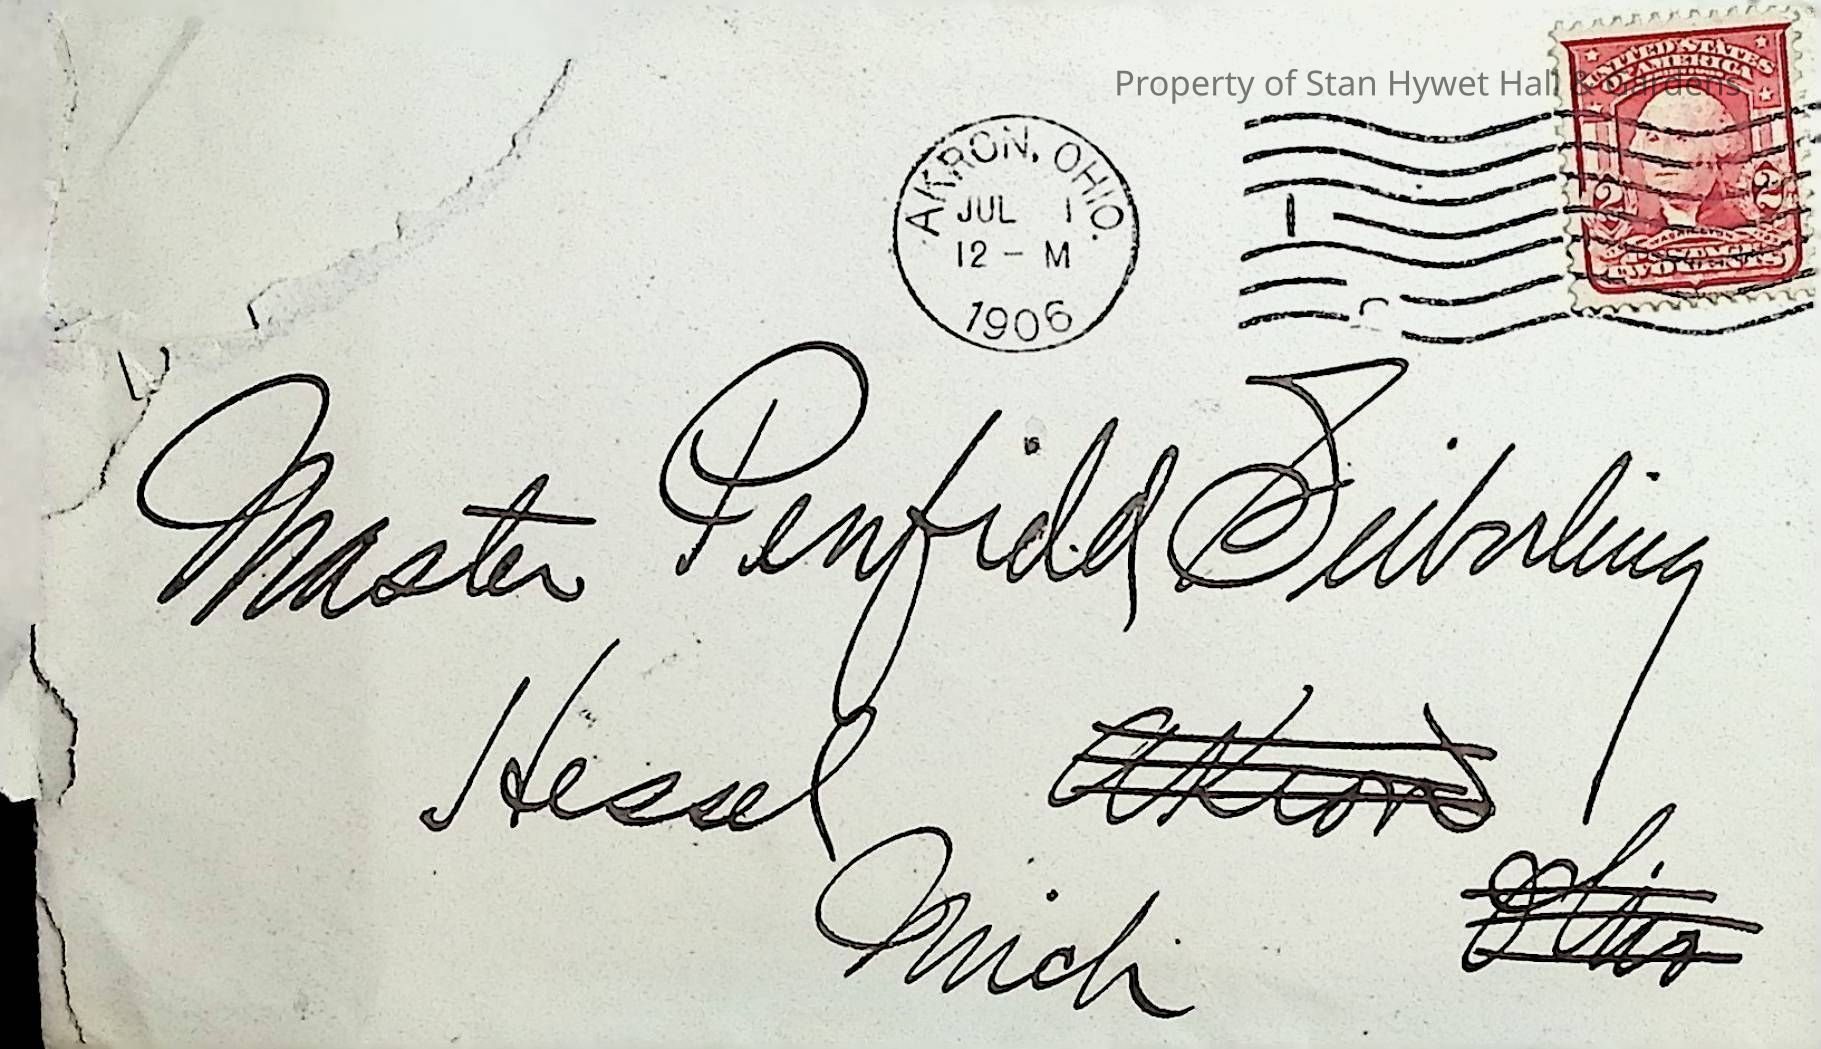 Property of Stan Hywet Hall & Gardens
UNITED STATES
OF AMERICA
AKRON, OHIO.
JUL 1
12 - M
1906
1
2 2
WASHINGTON
TWO CENTS
Master Penfield Seiberling
Hessel Akron
Mich Ohio